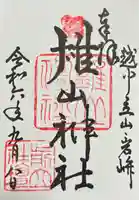 奉拝
越中立山岩峅
雄山神社
令和六年九月八日